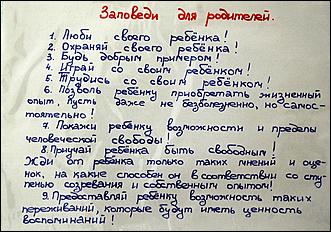 Заповеди для родителей.
1. Люби своего ребёнка!
2. Охраняй своего ребёнка!
3. Будь добрым примером!
4. Играй со своим ребёнком!
5. Трудись со своим ребёнком!
6. Позволь ребёнку приобретать жизненный
опыт. Пусть даже не безболезненно, но самос-
тоятельно!
7. Покажи ребёнку возможности и пределы
человеческой свободы!
8. Приучай ребёнка быть свободным!
Жди от ребёнка только таких мнений и оце-
нок, на какие способен он в соответствии со сту-
пенью созревания и собственным опытом!
9. Предоставляй ребёнку возможность таких
переживаний, которые будут иметь ценность
воспоминаний!